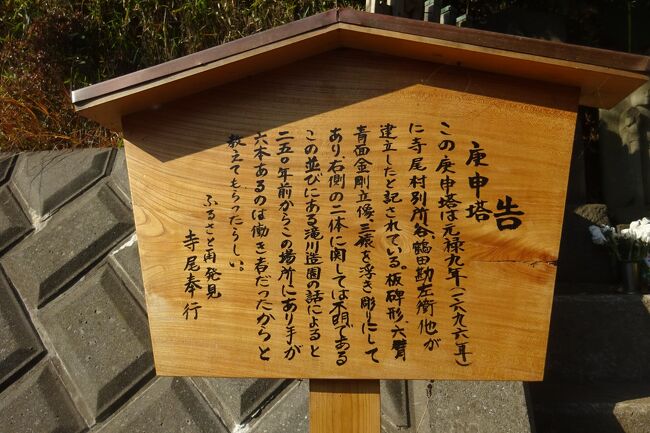 告
庚申塔
この庚申塔は元禄九年(一六九六年)
に寺尾村別所谷、鶴田勘左衛他が
建立したと記されている。板碑形・六臂
青面金剛立像、三猿を浮き彫りにして
あり、右側の二体に関しては不明である
この並びにある滝川造園の話によると
二五〇年前からこの場所にあり手が
六本あるのは働き者だったからと
教えてもらったらしい。
ふるさと再発見
寺尾奉行